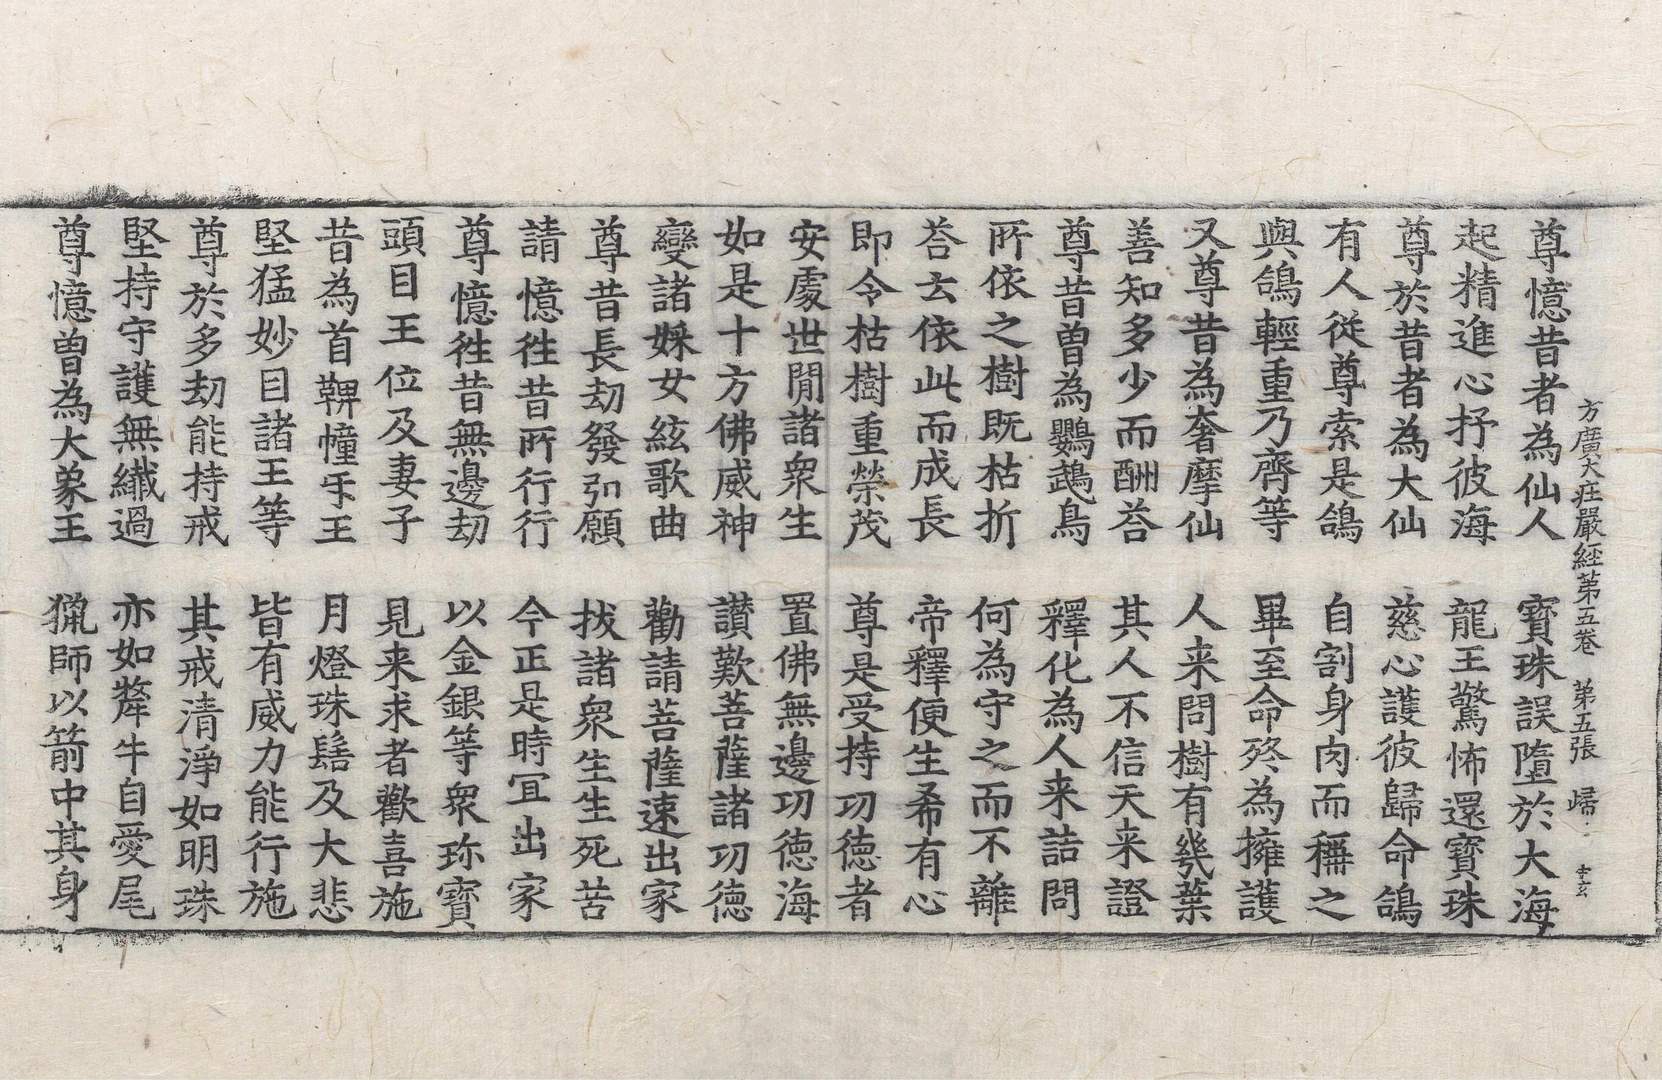 方廣大庄嚴經第五卷 第五張 歸
尊憶昔者為仙人 寶珠誤墮於大海
起精進心抒彼海 龍王驚怖還寶珠
尊於昔者為大仙 慈心護彼歸命鴿
有人從尊索是鴿 自割身肉而稱之
與鴿輕重乃齊等 畢至命終為擁護
又尊昔為奢摩仙 人来問樹有幾葉
善知多少而酬荅 其人不信天来證
尊昔曾為鸚鵡鳥 釋化為人来詰問
所依之樹既枯折 何為守之而不離
荅云依此而成長 帝釋便生希有心
即令枯樹重榮茂 尊是受持功德者
安處世閒諸衆生 置佛無邊功德海
如是十方佛威神 讃歎菩薩諸功德
變諸婇女絃歌曲 勸請菩薩速出家
尊昔長劫發弘願 拔諸衆生生死苦
請憶徃昔所行行 今正是時冝出家
尊憶徃昔無邊劫 以金銀等衆珎寶
頭目王位及妻子 見来求者歡喜施
昔為首髀幢牙王 月燈珠髻及大悲
堅猛妙目諸王等 皆有威力能行施
尊於多劫能持戒 其戒清淨如明珠
堅持守護無纖過 亦如犛牛自愛尾
尊憶曾為大象王 獵師以箭中其身